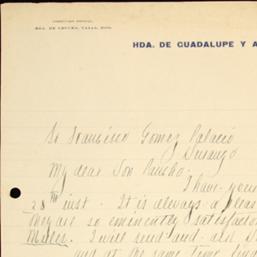 DIRECCION POSTAL
HDA. DE CRUCES, CASAS, DGO.
HDA. DE GUADALUPE Y A
Sr Francisco Gomez Palacio
Durango
My dear Don Pancho.
I have your
28th inst. It is always a pleas
They are so eminently satisfactor
I will send and
and at the same time